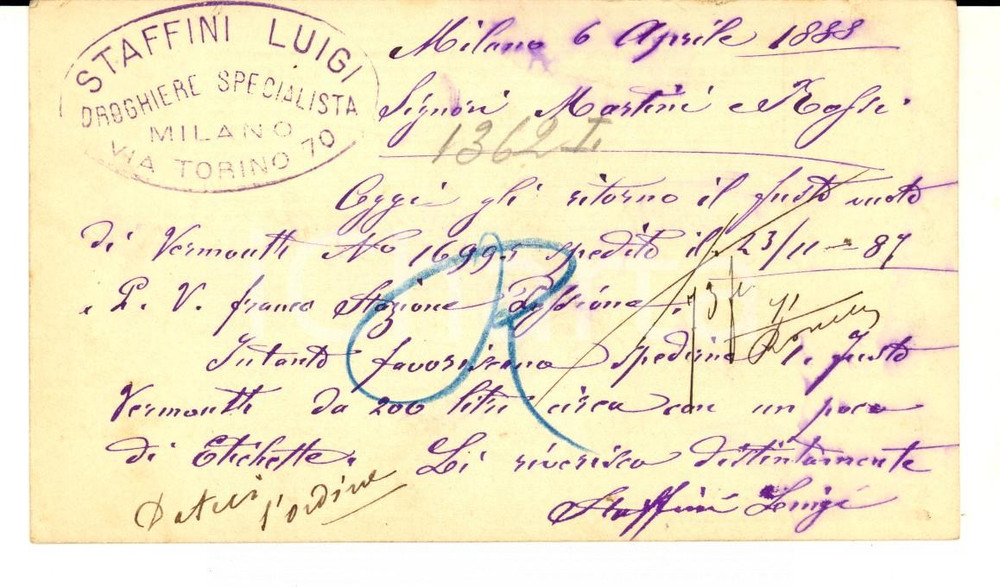 STAFFINI LUIGI
DROGHIERE SPECIALISTA
MILANO
VIA TORINO 70
Milano 6 Aprile 1888
Signori Martini e Rossi
1362 I.
Oggi gli ritorno il fusto vuoto
di Vermouth No 16995 spedito il 23/11-87
P. V. franco Stazione Pessione.
Intanto favoriranno spedirmi 1. fusto
Vermouth da 200 litri circa con un poco
di Etichette. Li riverisco distintamente
Staffini Luigi
l'ordine
R